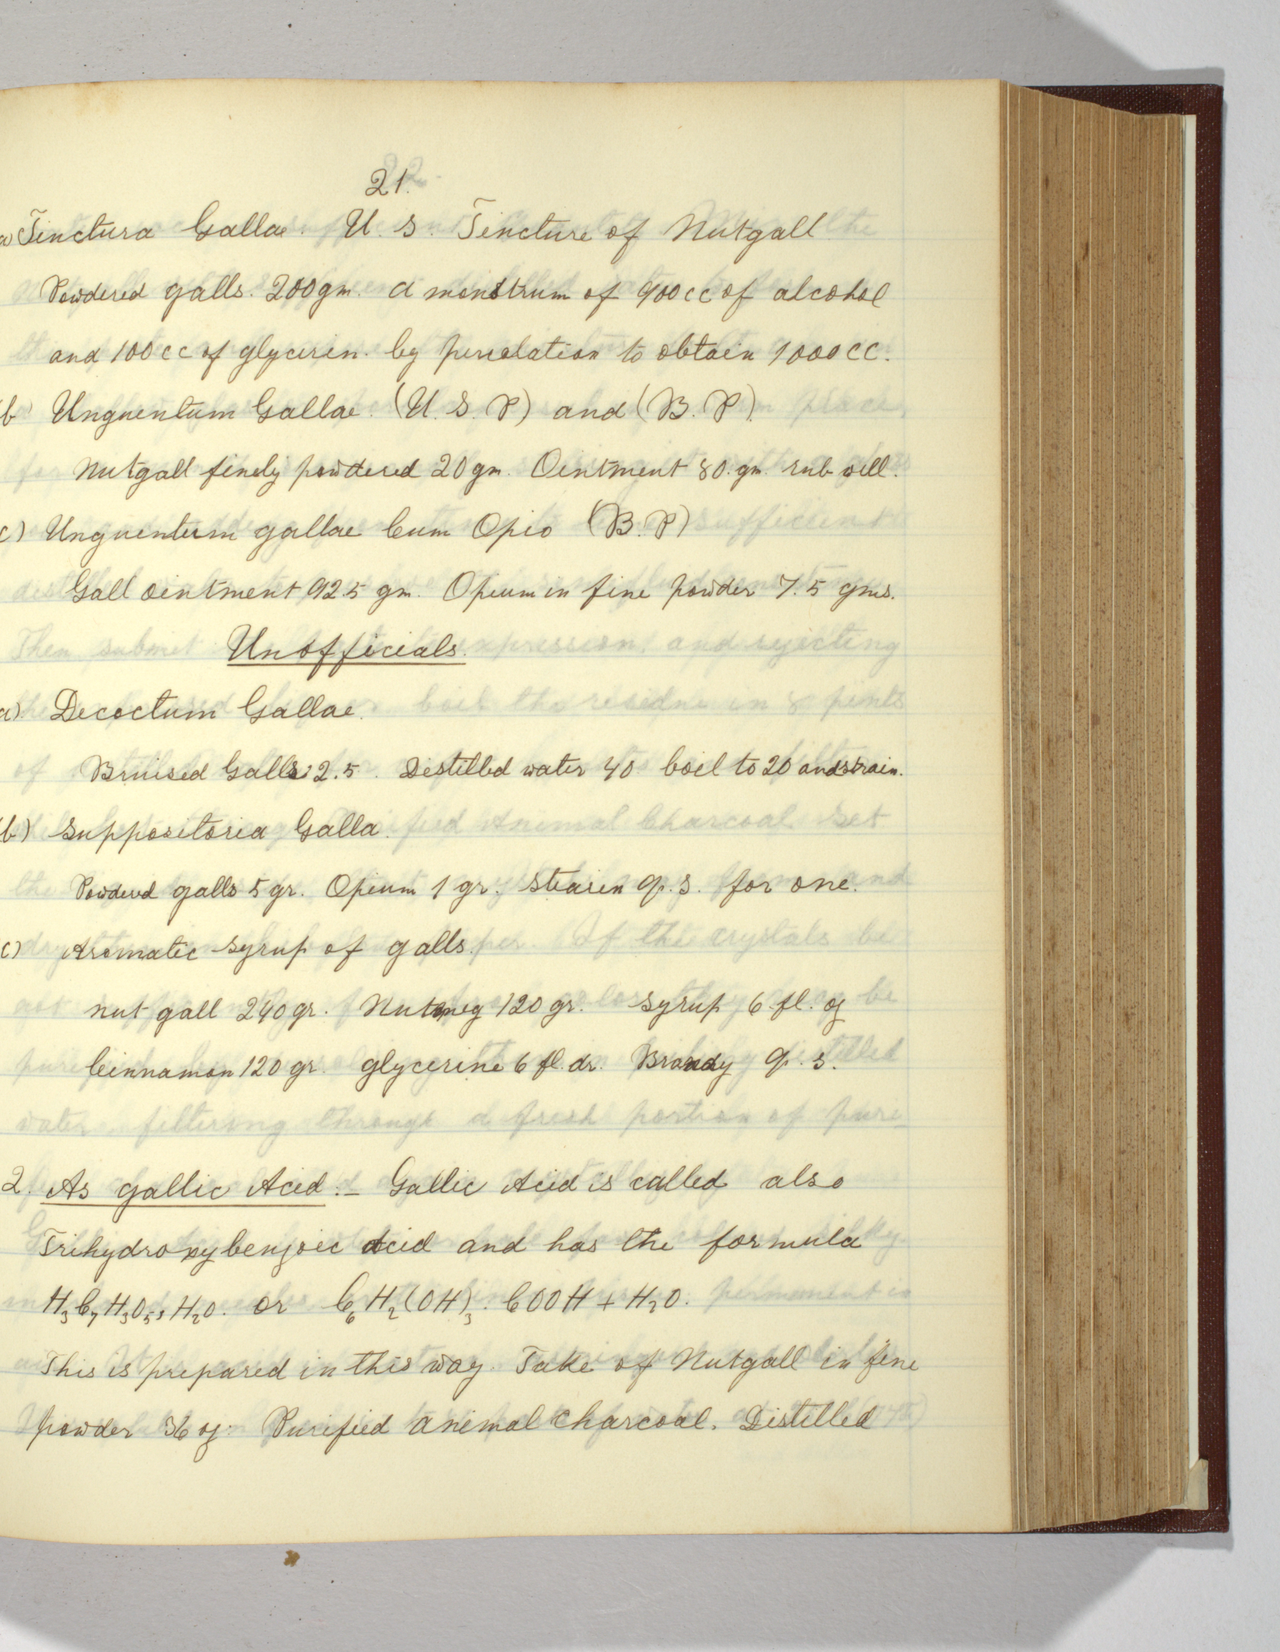 21.
a) Tinctura Gallae. U. S. Tincture of Nutgall
Powdered galls. 200 gm. a menstrum of 900 cc of alcohol
and 100 cc of glycerin. by percolation to obtain 1000 cc.
(b Unguentum Gallae. (U. S. P) and (B. P).
Nutgall finely powdered 20 gm. Ointment 80. gm. rub well.
c) Unguentum gallae Cum Opio (B. P)
Gall ointment 92.5 gm. Opium in fine powder 7.5 gms.
Unofficials.
a) Decoctum Gallae.
Bruised Galls 2.5. Distilled water 40 boil to 20 and strain.
(b) Suppositoria Galla.
Powderd galls 5 gr. Opium 1 gr. stearin q. s. for one.
c) Aromatic syrup of galls.
nut gall 240 gr. Nutmeg 120 gr. syrup 6 fl. oz
Cinnamon 120 gr. glycerine 6 fl. dr. Brandy q. s.
2. As gallic Acid. — Gallic Acid is called also
Trihydroxybenzoic Acid and has the formula
H3C7H3O5, H2O. or C6H2(OH)3. COOH + H2O.
This is prepared in this way. Take of Nutgall in fine
powder 36 oz. Purified animal charcoal. Distilled